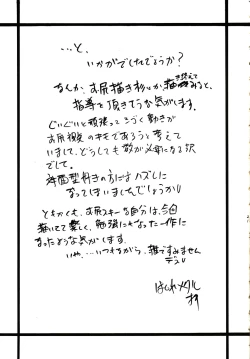 …と、
いかがでしたでしょうか？
なんか、お尻描き杉とか
指導を頂きそうな気がします。
ぐいぐいと頑張ってこづく動きが
お尻
のキモであろうと考えて
いまして、どうしても数が必要になる訳
でして。
の方にはハズレに
なってしまいましたでしょうか
ともかくも、お尻スキーな自分は、今回
描いてて楽しく、勉強にもなった一作に
なったような気がします。
いや…いつもながら、雑ですみません
デス